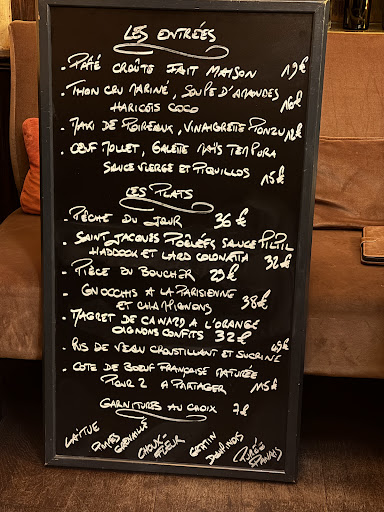 LES ENTRÉES
- PÂTÉ CROÛTE FAIT MAISON 19€
- THON CRU MARINÉ, SOUPE D'AMANDES
HARICOTS COCO 16€
- MAXI DE POIREAUX, VINAIGRETTE PONZU 12€
- OEUF MOLLET, GALETTE MAÏS TEMPURA
SAUCE VIERGE ET PIQUILLOS 15€
LES PLATS
- PÊCHE DU JOUR 36€
- SAINT JACQUES POÊLÉES SAUCE PILPIL
HADDOCK ET LARD COLONATTA 32€
- PIÈCE DU BOUCHER 29€
- GNOCCHIS A LA PARISIENNE
ET CHAMPIGNONS 38€
- MAGRET DE CANARD A L'ORANGE
OIGNONS CONFITS 32€
- RIS DE VEAU CROUSTILLANT ET SUCRINE
- COTE DE BOEUF FRANÇAISE MATUREE
POUR 2 A PARTAGER 115€
GARNITURES AU CHOIX 7€
LAITUE
GRENAILLE
CHOUX-FLEUR
GRATIN DAUPHINOIS
PURÉE PANAIS